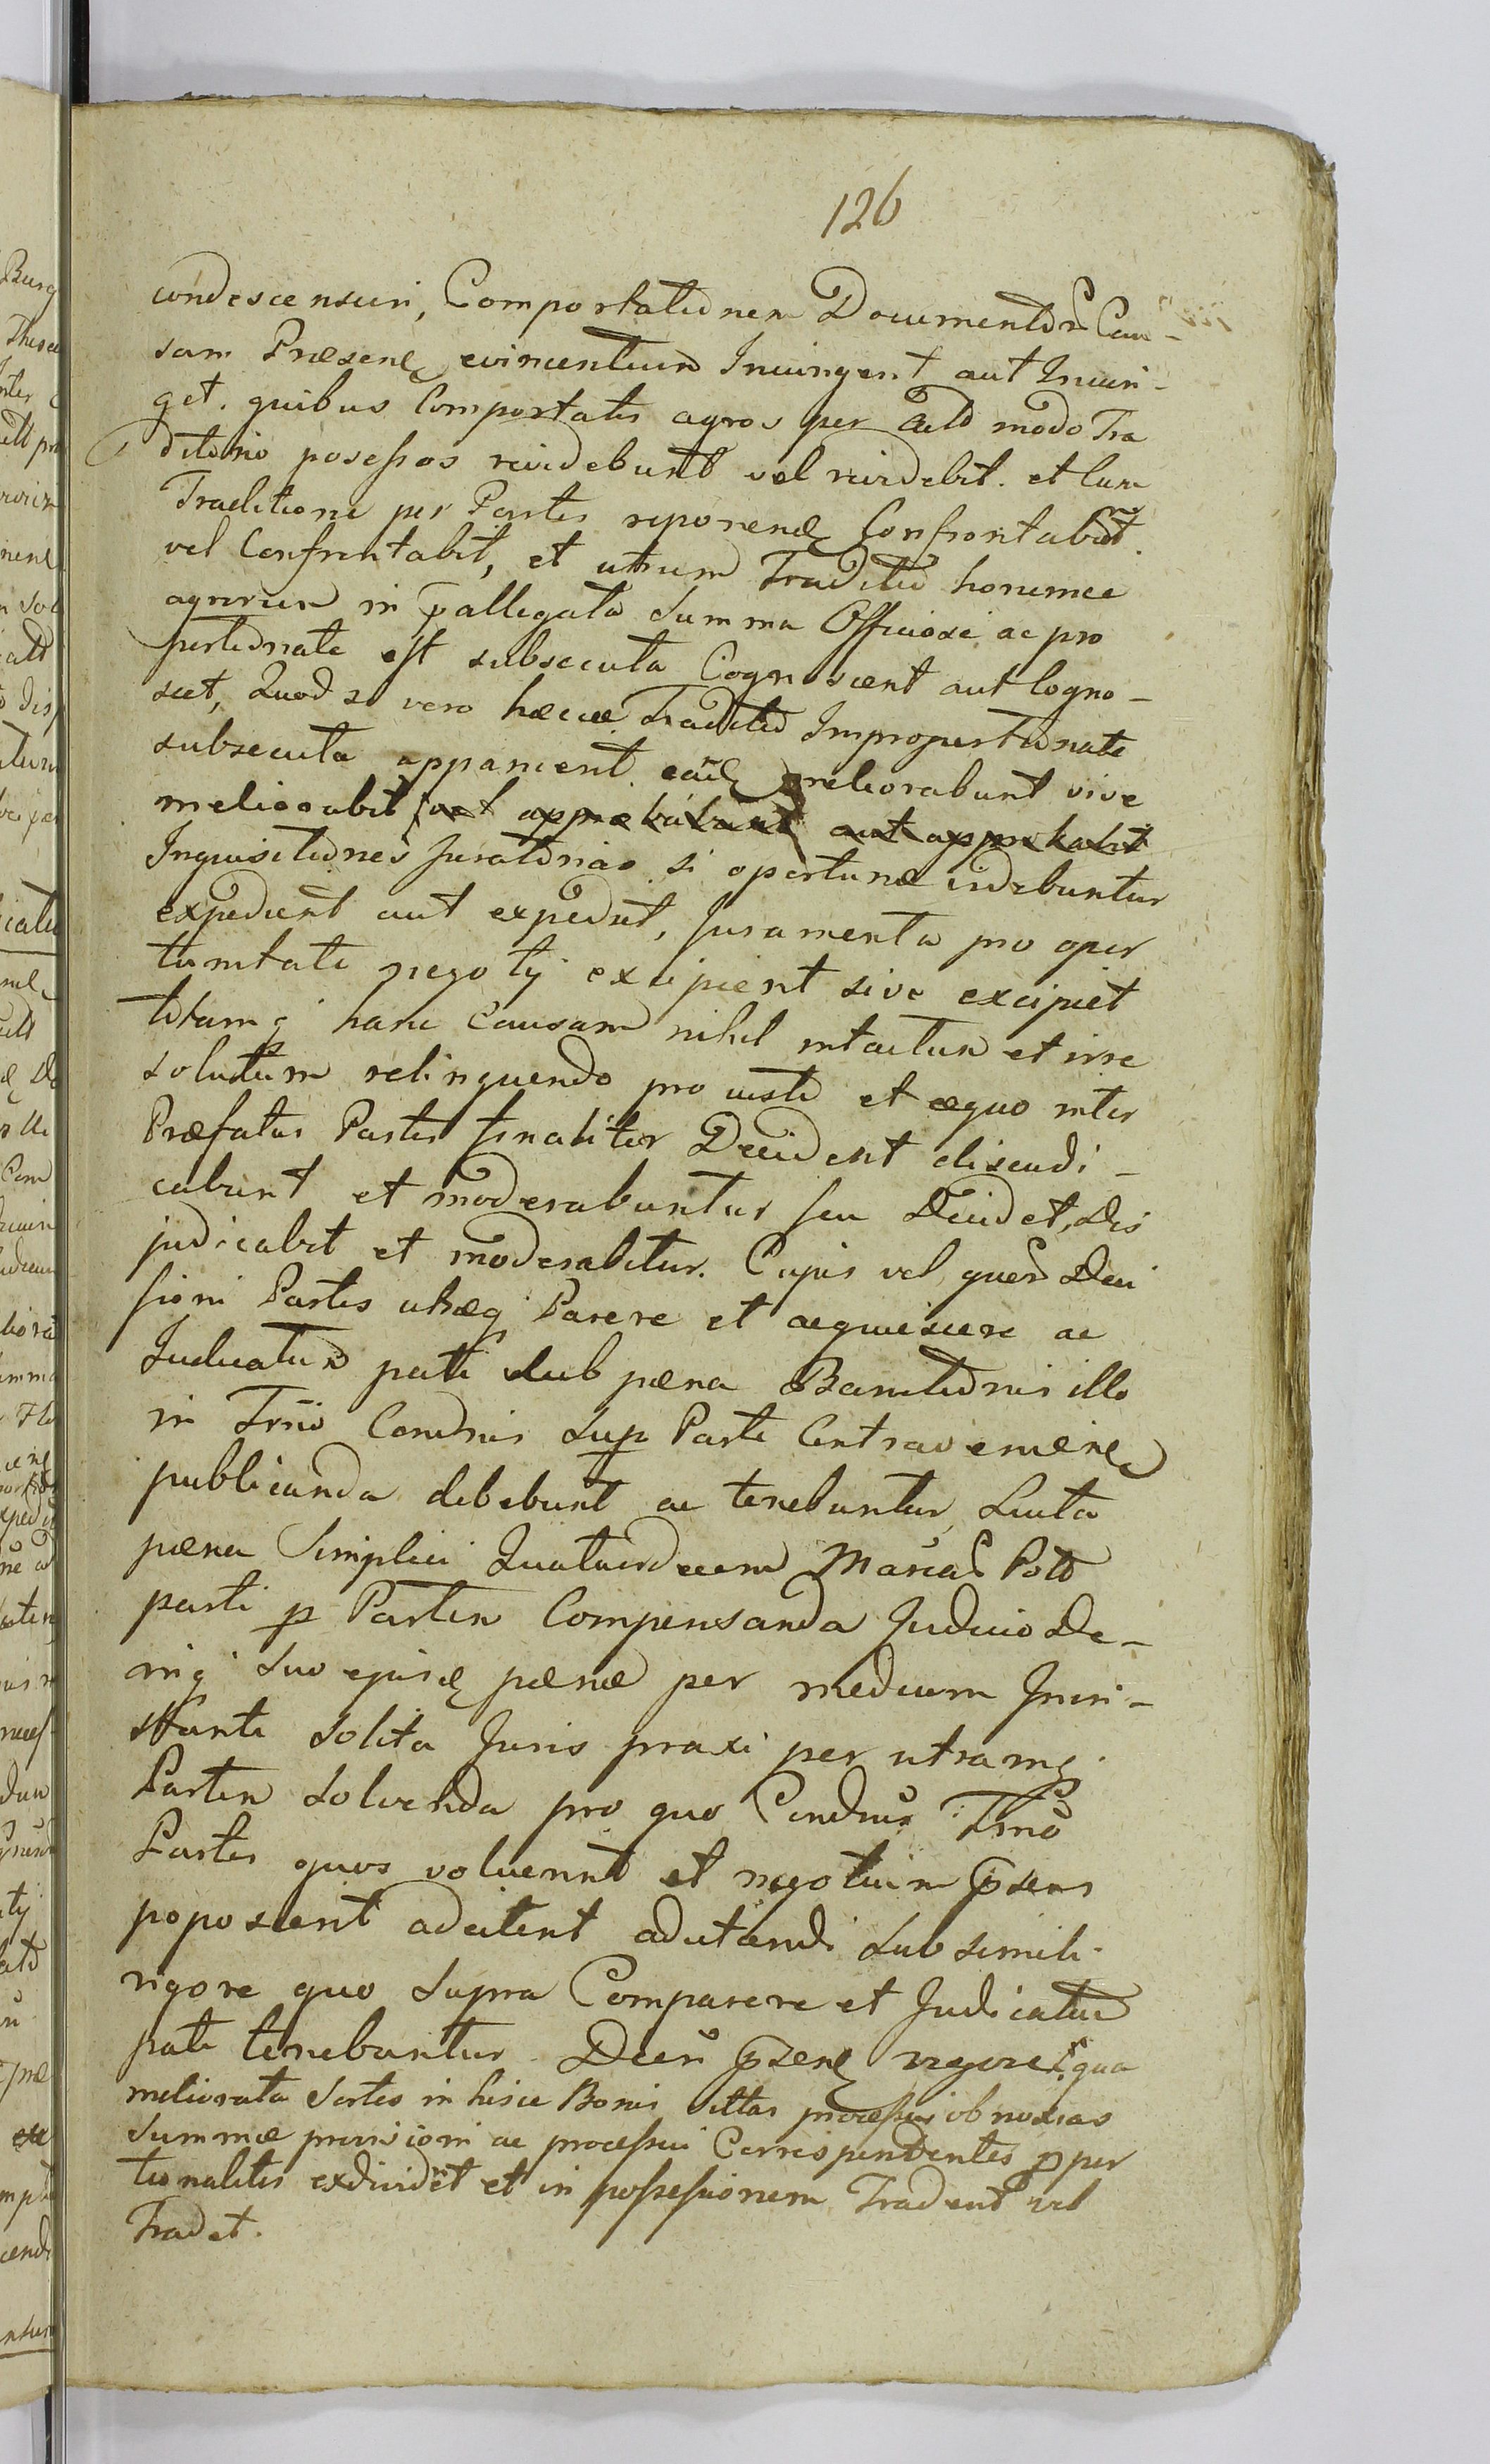 126
condescensuri, Comportationem Documentor Cau-
sam Præsene evincentium Iniungent aut Iniun-
get. quibus Comportatis agros per Acto modo Tra
ditorio posessos revidebunt vel revidebit. et Cum
Traditione per Partes reponene Confrontabunt
vel Confrontabit, et utrum Traditio honumce
agrorum in pallegata Summa Officiose ac pro
portionate est subsecuta Cognoscent aut Cogno-
scet, Quod si vero hæcce Traditio Improportionate
subsecuta apparuerit eand meliorabunt sive
meliorabit vel approbabunt aut approbabit
Inquisitiones Juratorias si oportunæ videbuntur
expedient aut expediet, Juramenta pro opor
tunitate negotij excipient sive excipiet
totamq hanc Causam nihil intactum et irre
solutum relinquendo pro iusto et æquo inter
Præfatas Partes finaliter Decident disiudi-
cabunt et moderabuntur seu Decidet, Dis
judicabit et moderabitur. Cujus vel quor Deci
sioni Partes utræq Parere et acquiescere ac
Judicatum pati sub pæna Banitionis illo
in Trno Condnis Sup Parte Contraveniene
publicanda debebunt ac tenebuntur, Luita
pæna Simplici Quatuordecem Marcar Polo
parti p Partem Compensanda Judicio De-
niq suo ejusd pænæ per medium Inri-
stante Solita Juris praxi per utramq
Partem Solvenda pro quo Condnis Trno
Partes quos voluerint et negotium psens
poposcerit adcitent adcitandi sub simili
rigore quo supra Comparere et Judicatum
pati tenebuntur Decri psene vigore, qua
meliorata Sortes in hisce Bonis sittas processui obnoxias
Summæ provisioni ac processui Correspondentes ppor
tionaliter exdivident et in possessionem Tradent vel
Tradet.